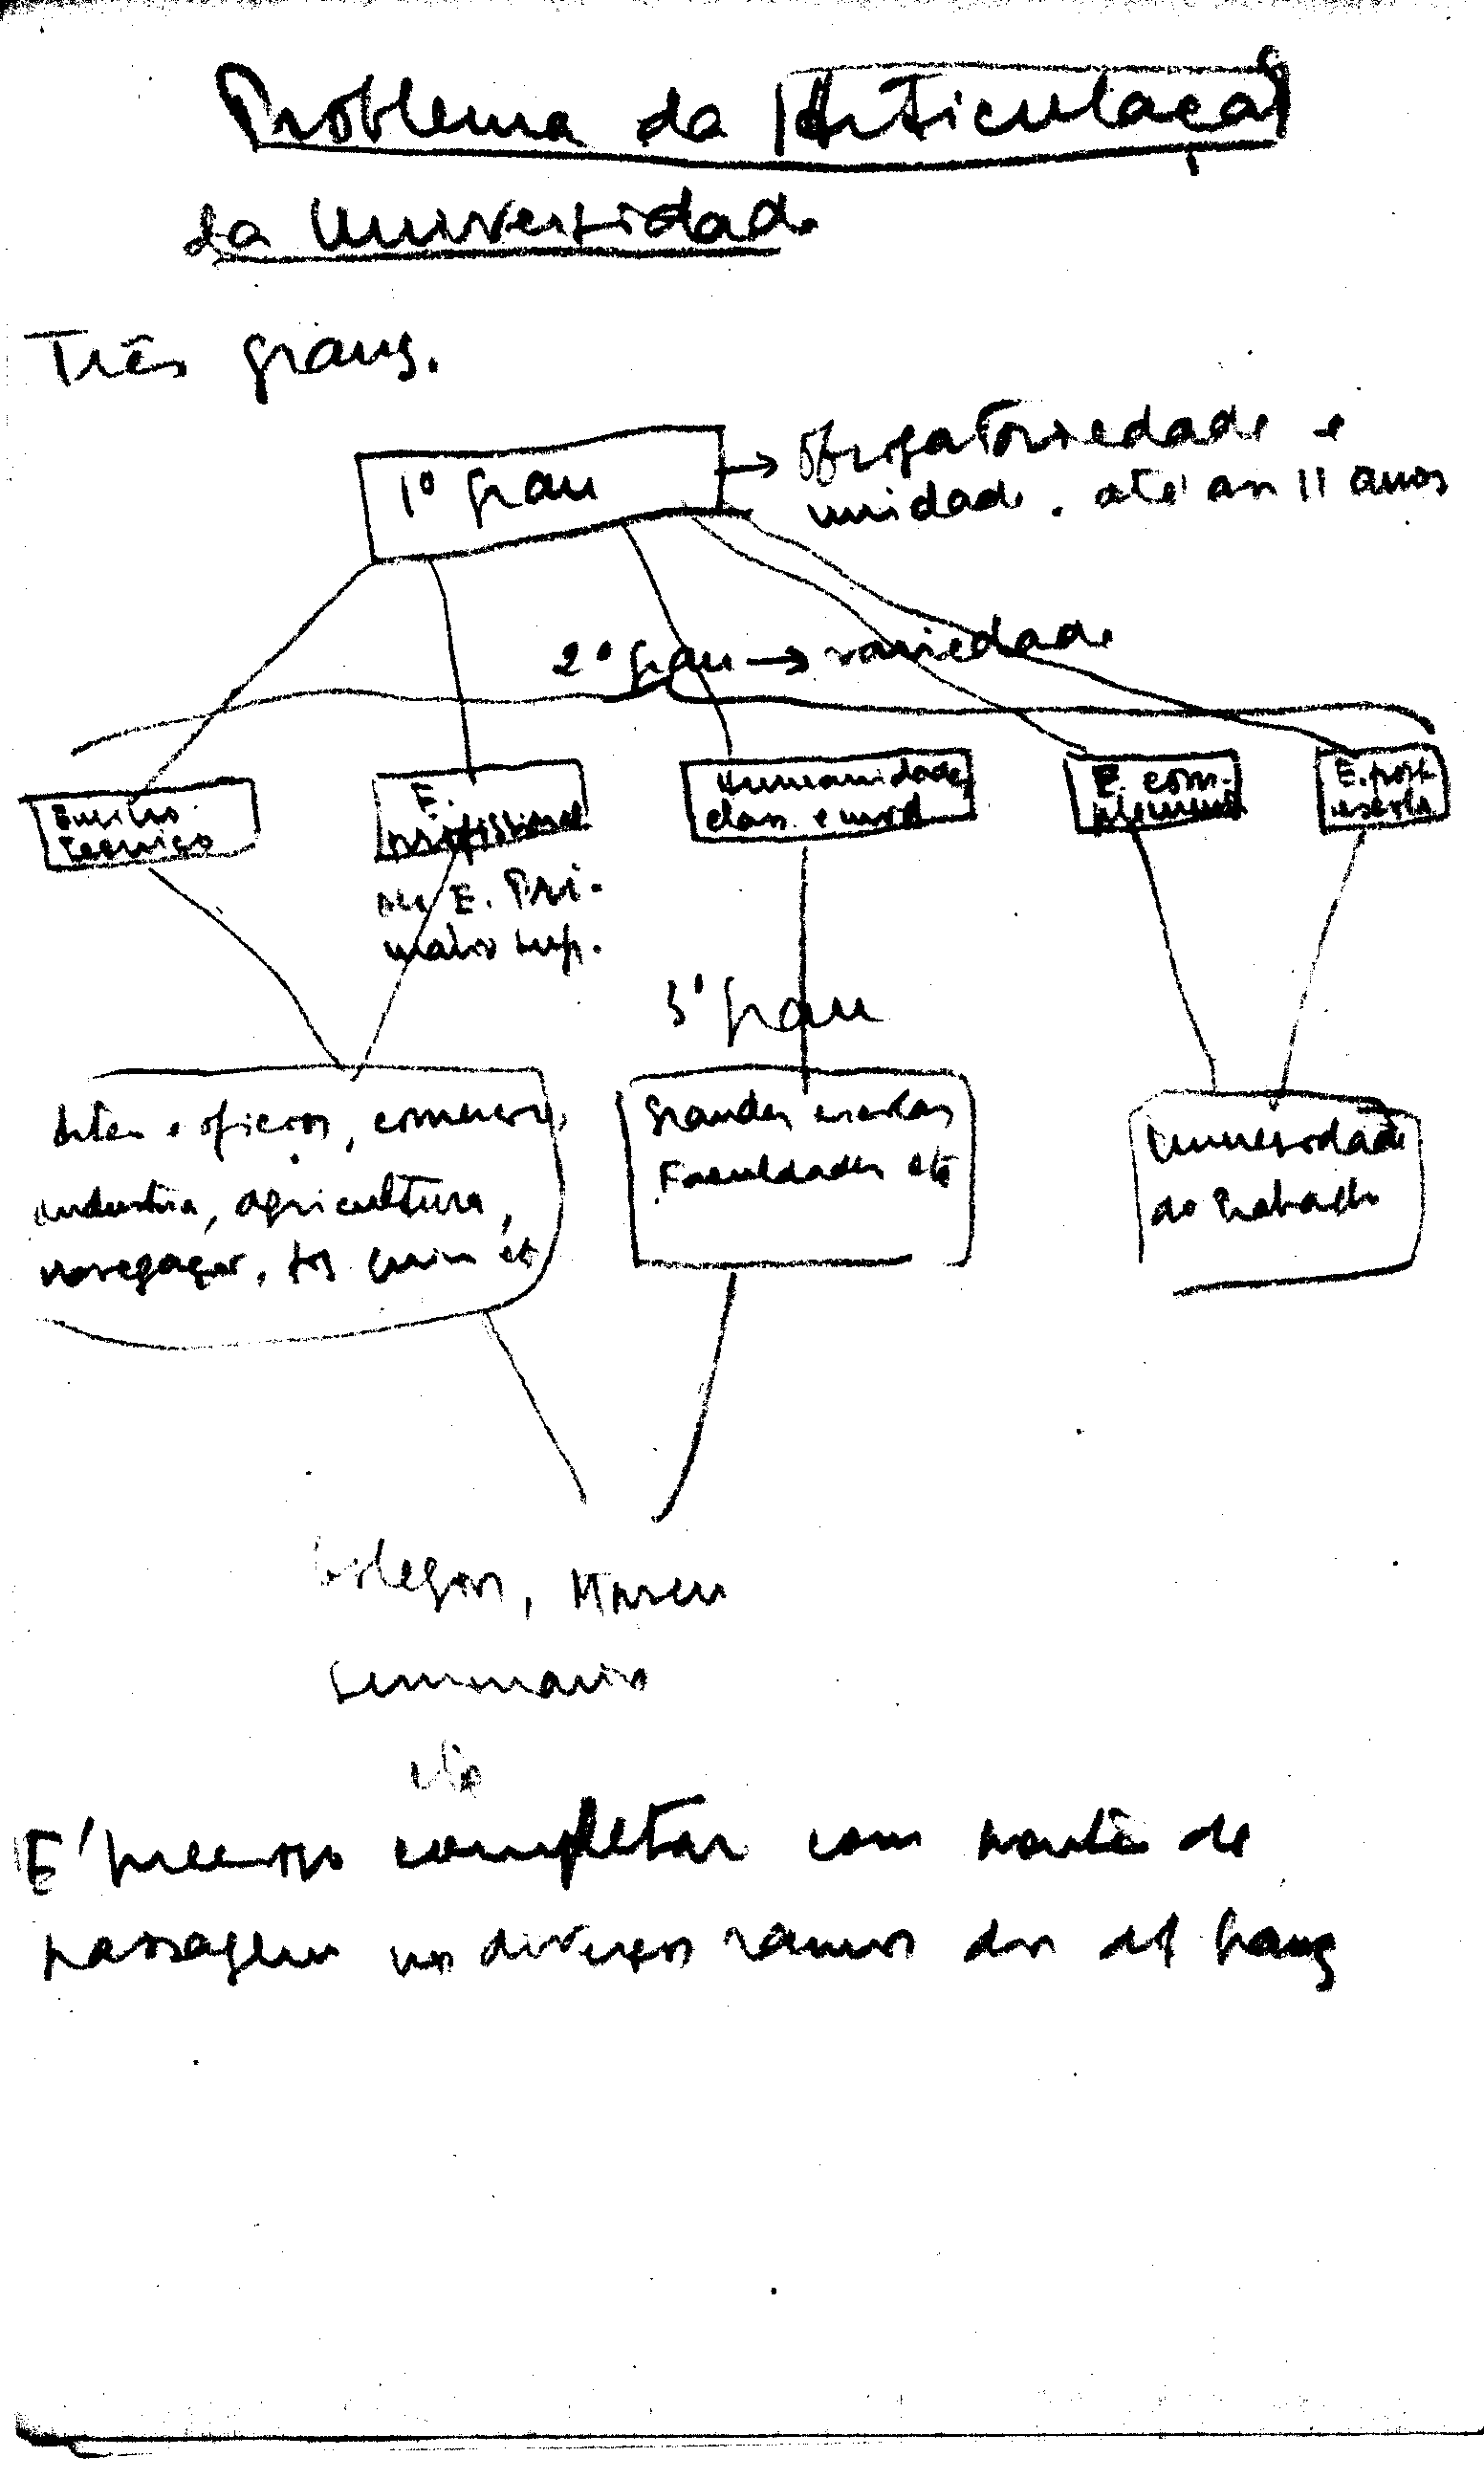 Problema da Articulação
da Universidade
Três graus.
1º grau → obrigatoriedade e
unidade. até aos 11 anos
2º grau → variedade
Ensino
técnico
E.
profissional
ou E. Pri-
mário sup.
Humanidades
class. e mod.
E. com-
plement.
E. post
escola
3º grau
Artes e oficios, comercio,
industria, agricultura,
navegação,
Grandes escolas
Faculdades etc
Universidade
do trabalho
Colegios, Museu
seminario
etc
E' preciso completar com ponte de
passagem nos diversos ramos dos graus